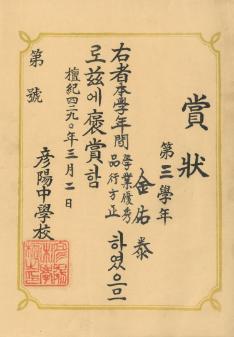 賞狀
第三學年
金佑泰
右者本學年間 學業優秀 品行方正 하였으므
로玆에褒賞함
檀紀四二九〇年三月二日
彦陽中學校
第 號